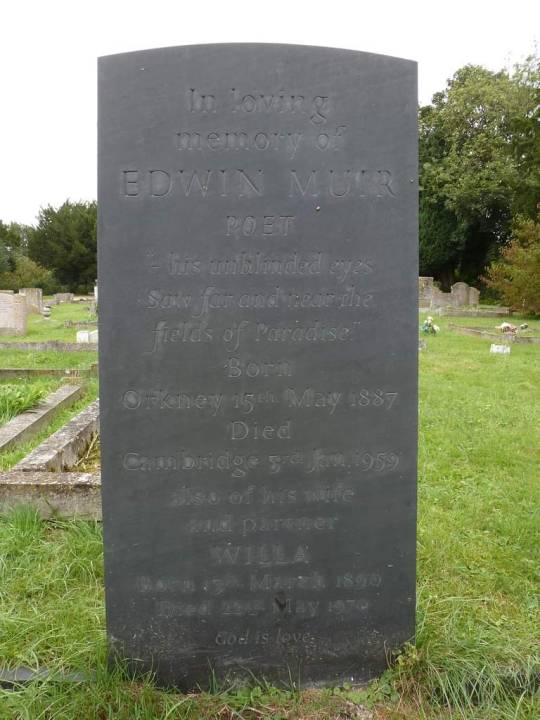 In loving
memory of
EDWIN MUIR
POET
"- his unblinded eyes
Saw far and near the
fields of Paradise"
Born
Orkney 15th May 1887
Died
Cambridge 3rd Jan. 1959
also of his wife
and partner
WILLA
Born 13th March 1890
Died 22nd May 1970
God is love